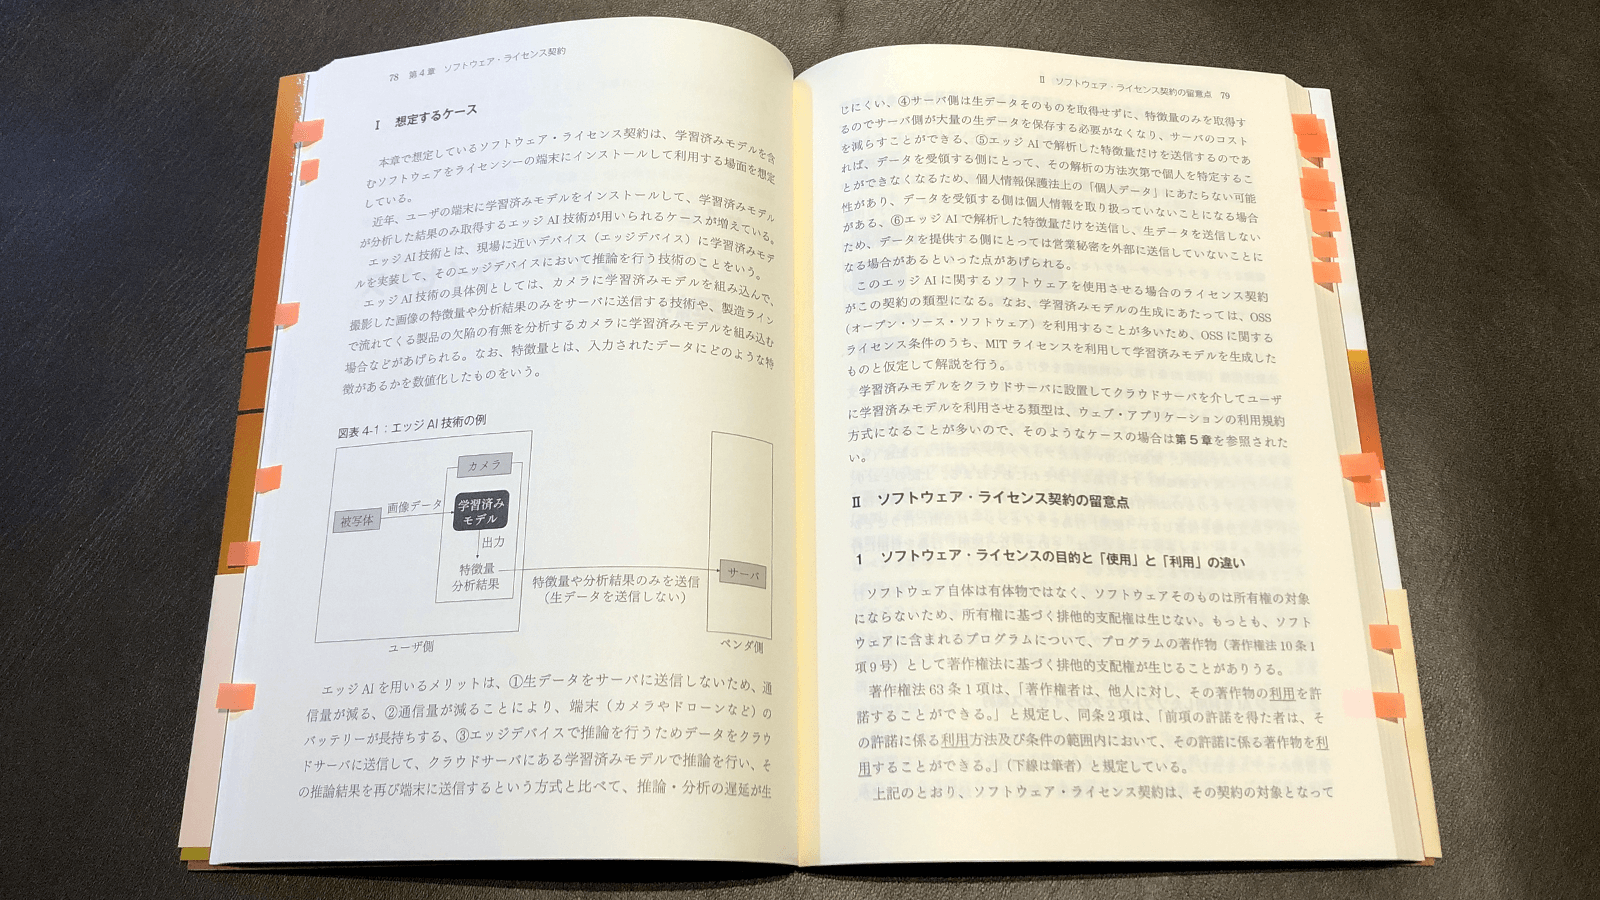 78 第4章 ソフトウェア・ライセンス契約
I 想定するケース
本章で想定しているソフトウェア・ライセンス契約は、学習済みモデルを含
むソフトウェアをライセンシーの端末にインストールして利用する場面を想定
している。
近年、ユーザの端末に学習済みモデルをインストールして、学習済みモデル
が分析した結果のみ取得するエッジAI技術が用いられるケースが増えている。
エッジAI技術とは、現場に近いデバイス（エッジデバイス）に学習済みモデ
ルを実装して、そのエッジデバイスにおいて推論を行う技術のことをいう。
エッジAI技術の具体例としては、カメラに学習済みモデルを組み込んで、
撮影した画像の特徴量や分析結果のみをサーバに送信する技術や、製造ライン
で流れてくる製品の欠陥の有無を分析するカメラに学習済みモデルを組み込む
場合などがあげられる。なお、特徴量とは、入力されたデータにどのような特
徴があるかを数値化したものをいう。
図表4-1：エッジAI技術の例
カメラ
被写体
画像データ
学習済み
モデル
出力
特徴量
分析結果
特徴量や分析結果のみを送信
（生データを送信しない）
サーバ
ユーザ側
ベンダ側
エッジAIを用いるメリットは、①生データをサーバに送信しないため、通
信量が減る、②通信量が減ることにより、端末（カメラやドローンなど）の
バッテリーが長持ちする、③エッジデバイスで推論を行うためデータをクラウ
ドサーバに送信して、クラウドサーバにある学習済みモデルで推論を行い、そ
の推論結果を再び端末に送信するという方式と比べて、推論・分析の遅延が生
II ソフトウェア・ライセンス契約の留意点 79
じにくい、④サーバ側は生データそのものを取得せずに、特徴量のみを取得す
るのでサーバ側が大量の生データを保存する必要がなくなり、サーバのコスト
を減らすことができる、⑤エッジAIで解析した特徴量だけを送信するのであ
れば、データを受領する側にとって、その解析の方法次第で個人を特定するこ
とができなくなるため、個人情報保護法上の「個人データ」にあたらない可能
性があり、データを受領する側は個人情報を取り扱っていないことになる場合
がある、⑥エッジAIで解析した特徴量だけを送信し、生データを送信しない
ため、データを提供する側にとっては営業秘密を外部に送信していないことに
なる場合があるといった点があげられる。
このエッジAIに関するソフトウェアを使用させる場合のライセンス契約
がこの契約の類型になる。なお、学習済みモデルの生成にあたっては、OSS
（オープン・ソース・ソフトウェア）を利用することが多いため、OSSに関する
ライセンス条件のうち、MITライセンスを利用して学習済みモデルを生成した
ものと仮定して解説を行う。
学習済みモデルをクラウドサーバに設置してクラウドサーバを介してユーザ
に学習済みモデルを利用させる類型は、ウェブ・アプリケーションの利用規約
方式になることが多いので、そのようなケースの場合は第5章を参照された
い。
II ソフトウェア・ライセンス契約の留意点
1 ソフトウェア・ライセンスの目的と「使用」と「利用」の違い
ソフトウェア自体は有体物ではなく、ソフトウェアそのものは所有権の対象
にならないため、所有権に基づく排他的支配権は生じない。もっとも、ソフト
ウェアに含まれるプログラムについて、プログラムの著作物（著作権法10条1
項9号）として著作権法に基づく排他的支配権が生じることがありうる。
著作権法63条1項は、「著作権者は、他人に対し、その著作物の利用を許
諾することができる。」と規定し、同条2項は、「前項の許諾を得た者は、そ
の許諾に係る利用方法及び条件の範囲内において、その許諾に係る著作物を利
用することができる。」（下線は筆者）と規定している。
上記のとおり、ソフトウェア・ライセンス契約は、その契約の対象となって